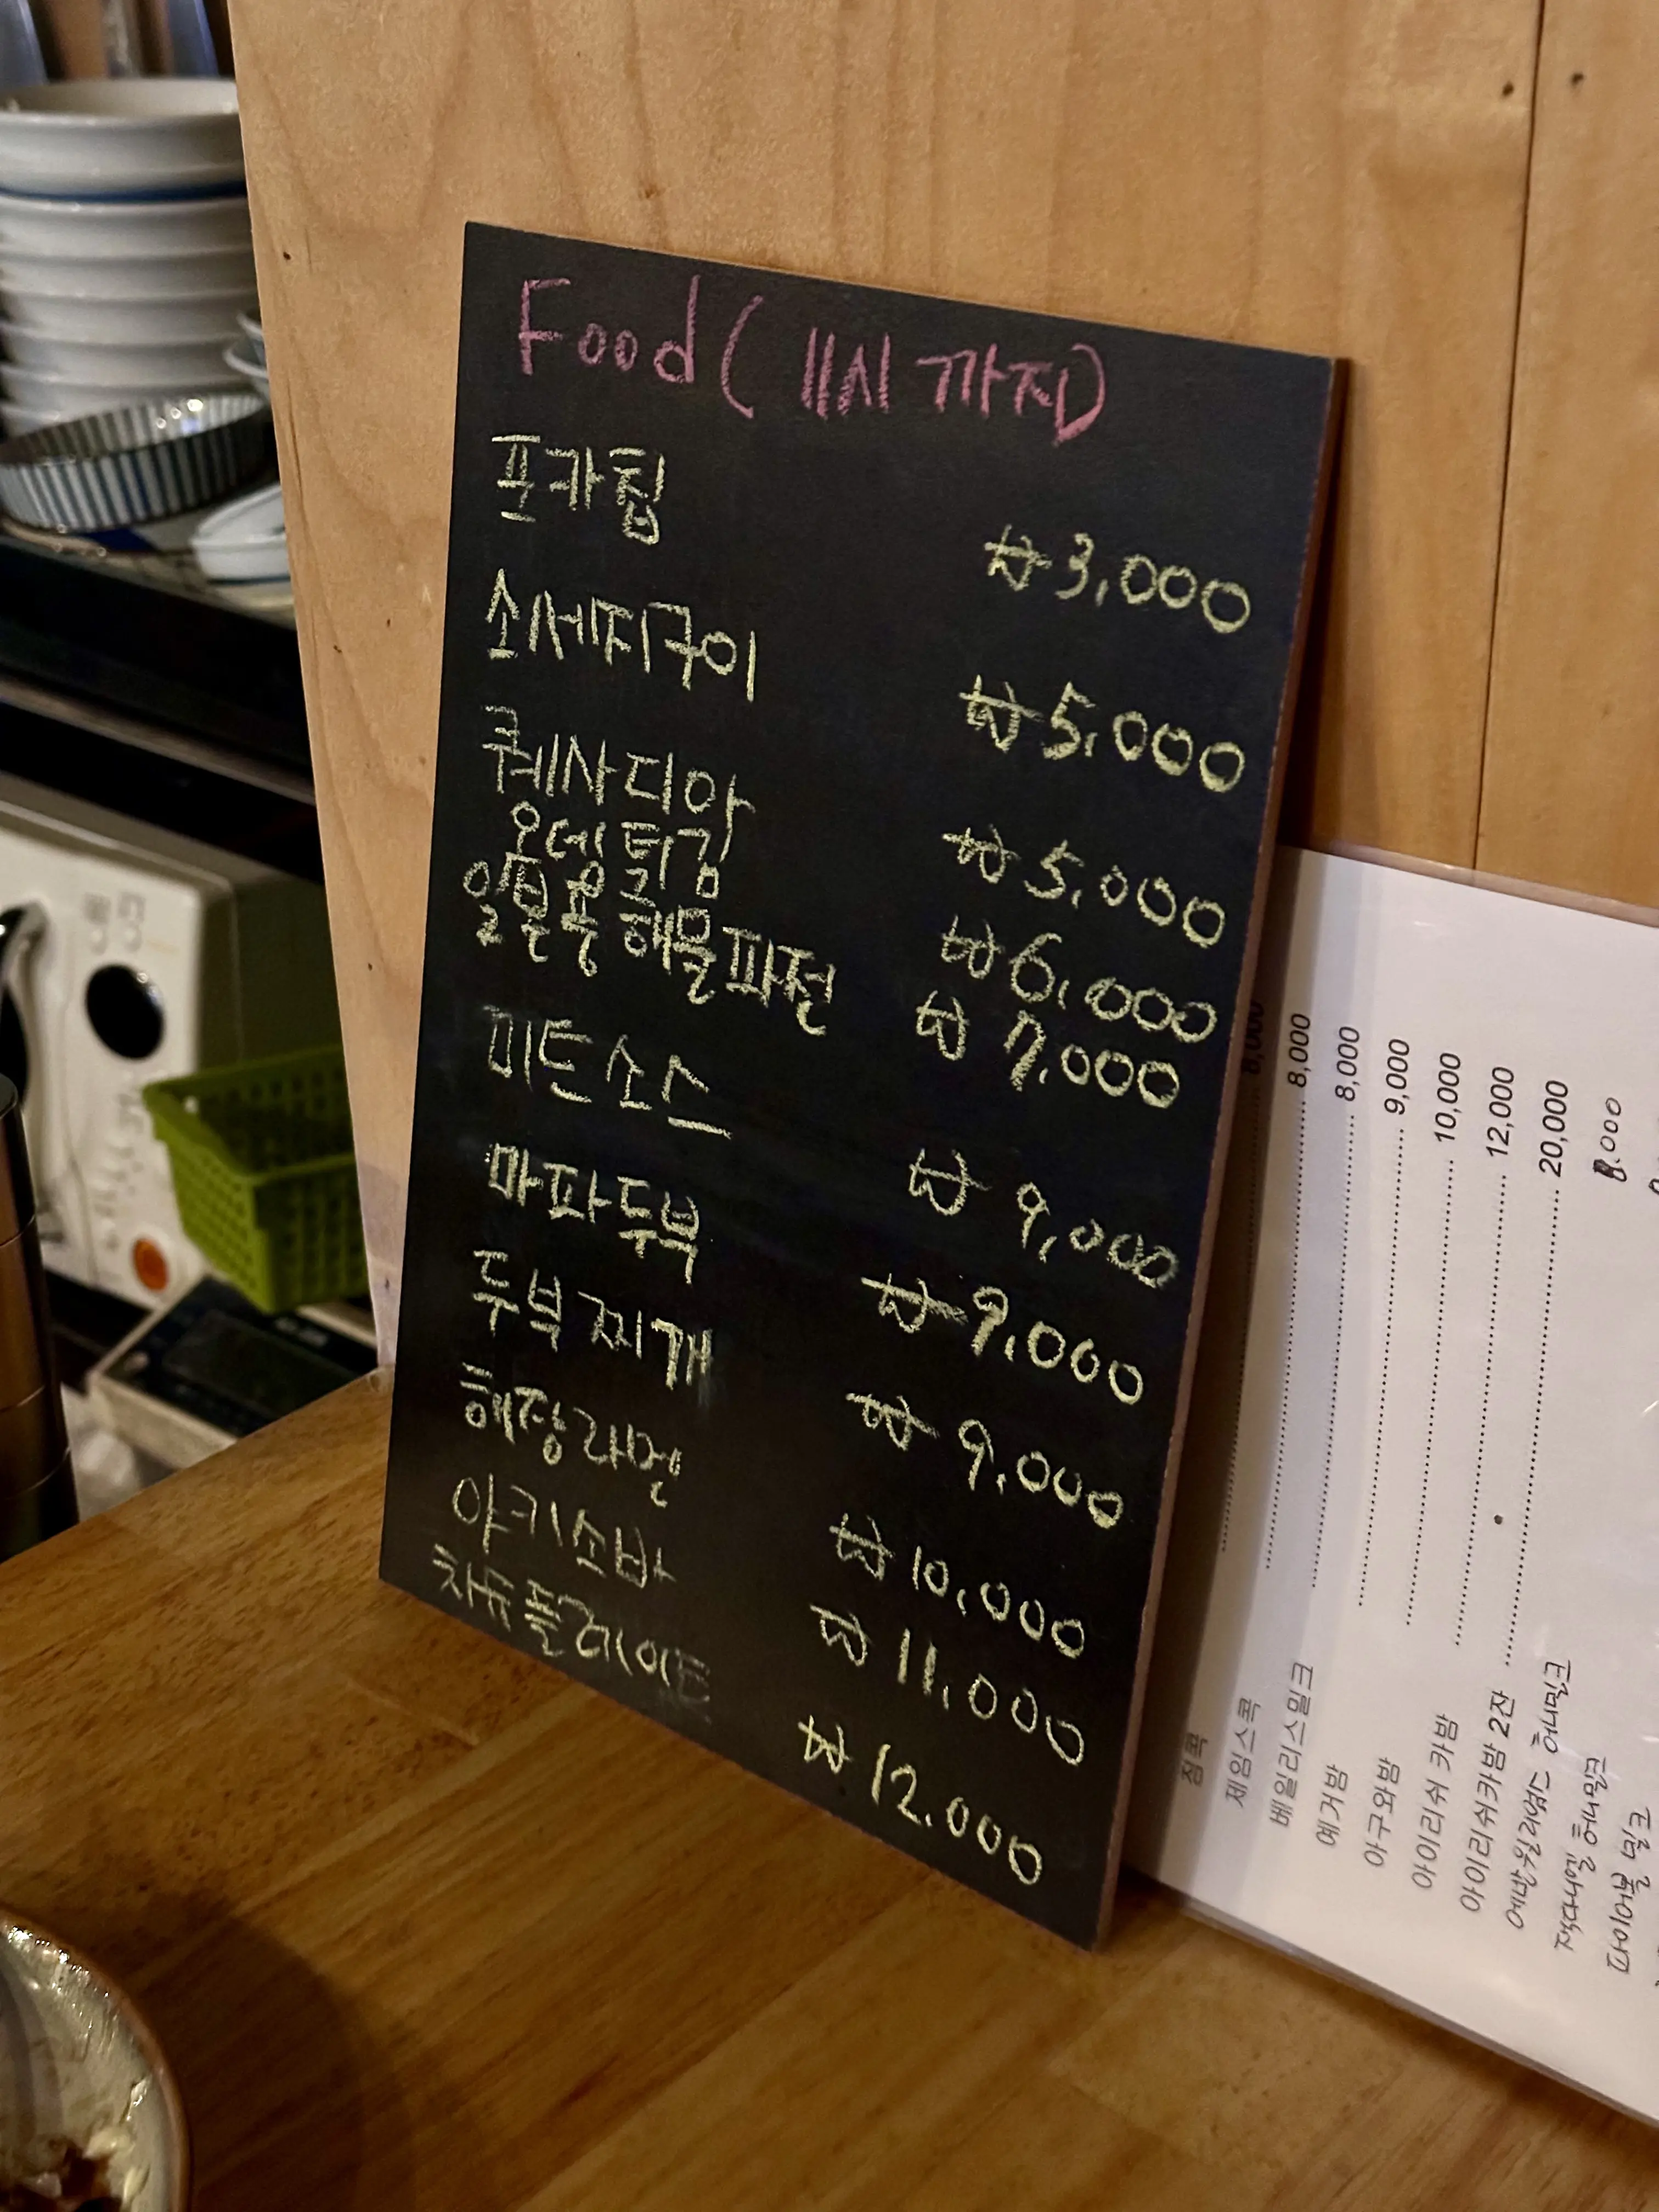 Food (11시 까지)
포카칩 ₩3,000
소세지구이 ₩5,000
퀘사디아 ₩5,000
오뎅튀김 ₩6,000
일본풍 해물파전 ₩7,000
미트소스 ₩9,000
마파두부 ₩9,000
두부찌개 ₩9,000
해장라멘 ₩10,000
야키소바 ₩11,000
차슈플레이트 ₩12.000
짐콕 8,000
제임스콕 8,000
베일리스밀크 8,000
예거밤 9,000
아구와밤 10,000
아이리쉬 카밤 12,000
아이리쉬카밤 2잔 20,000
에반윌리엄 그 언밀턴 8.000